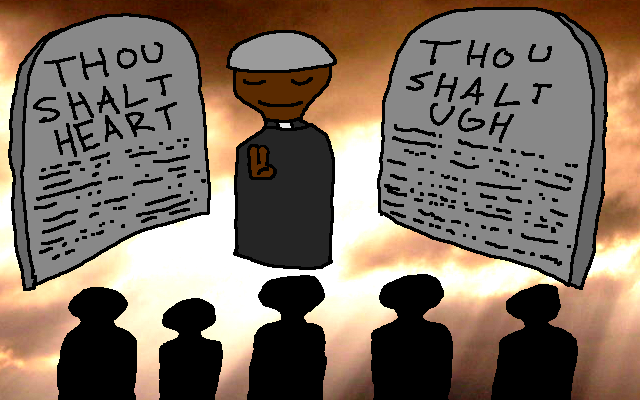 THOU
SHALT
HEART
THOU
SHALT
UGH